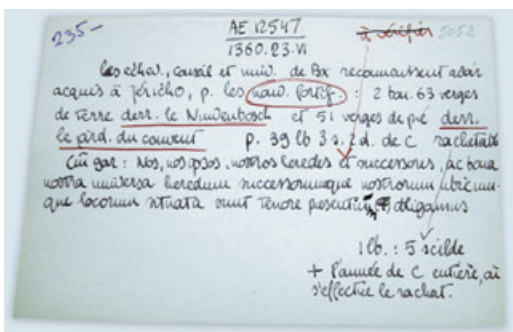 235-
AE 12547
1360.23.VI
à vérifier 5052
Les échev., conseil et univ. de Bx reconnaissent avoir
acquis à Jéricho, p. les nouv. fortif. : 2 bon. 63 verges
de terre derr. le Nuwenbosch et 51 verges de pré derr.
le jard. du couvent p. 39 lb 3 s. 2 d. de C rachetable
: Nos, nos ipsos, nostros heredes et successores, ac bona
nostra universa heredum successorumque nostrorum ubicum-
que locorum situata sunt tenore presentium obligamus
1 lb. : 5 scilde
+ l'année de C entière, où
s'effectue le rachat.